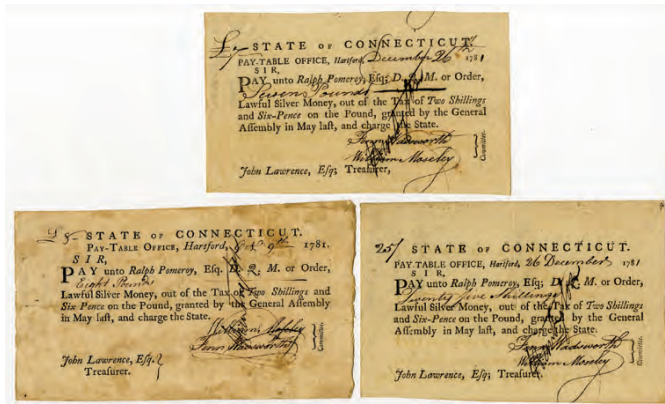 £7 STATE OF CONNECTICUT.
PAY-TABLE OFFICE, Hartford, December 26th 1781
SIR,
PAY unto Ralph Pomeroy, Esq; D. Q. M. or Order,
Seven Pounds
Lawful Silver Money, out of the Tax of Two Shillings
and Six-Pence on the Pound, granted by the General
Assembly in May last, and charge the State.
Fenn Wadsworth
William Moseley
Committee.
John Lawrence, Esq; Treasurer,
£8 STATE OF CONNECTICUT.
PAY-TABLE OFFICE, Hartford, 9th 1781.
SIR,
PAY unto Ralph Pomeroy, Esq. D. Q. M. or Order,
Eight Pounds
Lawful Silver Money, out of the Tax of Two Shillings and
Six Pence on the Pound, granted by the General Assembly
in May last, and charge the State.
William Moseley
Fenn Wadsworth
Committee.
John Lawrence, Esq.
Treasurer.
25/ STATE OF CONNECTICUT.
PAY-TABLE OFFICE, Hartford, 26 December 1781
SIR,
PAY unto Ralph Pomeroy, Esq; D. Q. M. or Order,
Twenty five Shillings
Lawful Silver Money, out of the Tax of Two Shillings
and Six-Pence on the Pound, granted by the General
Assembly in May last, and charge the State.
Fenn Wadsworth
William Moseley
Committee.
John Lawrence, Esq; Treasurer.